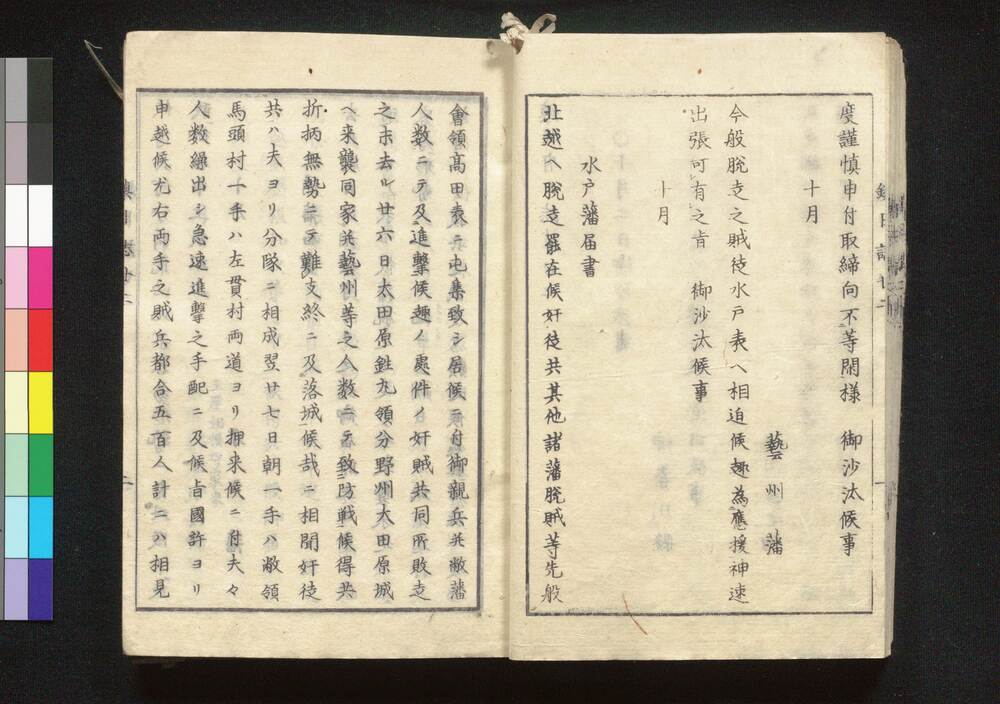 度謹慎申付取締向不等閑様　御沙汰候事
十月
藝州藩
今般脱走之賊徒水戸表ヘ相迫候趣為應援神速
出張可有之旨　御沙汰候事
十月
水戸藩届書
北越ヘ脱走罷在候奸徒共其他諸藩脱賊等先般
會領髙田表ニ屯集致シ居候ニ付御親兵并敝藩
人数ニテ及進撃候趣ノ處件ノ奸賊共同所敗走
之末去ル廿六日太田原鉎丸領分野州大田原城
ヘ来襲同家并藝州等之人数ニテ致防戦候得共
折柄無勢ニテ難支終ニ及落城候哉ニ相聞奸徒
共ハ夫ヨリ分隊ニ相成翌廿七日朝一手ハ敝領
馬頭村一手ハ左貫村両道ヨリ押来候ニ付夫々
人数繰出シ急速進撃之手配ニ及候旨國許ヨリ
申越候尤右両手之賊兵都合五百人計ニハ相見